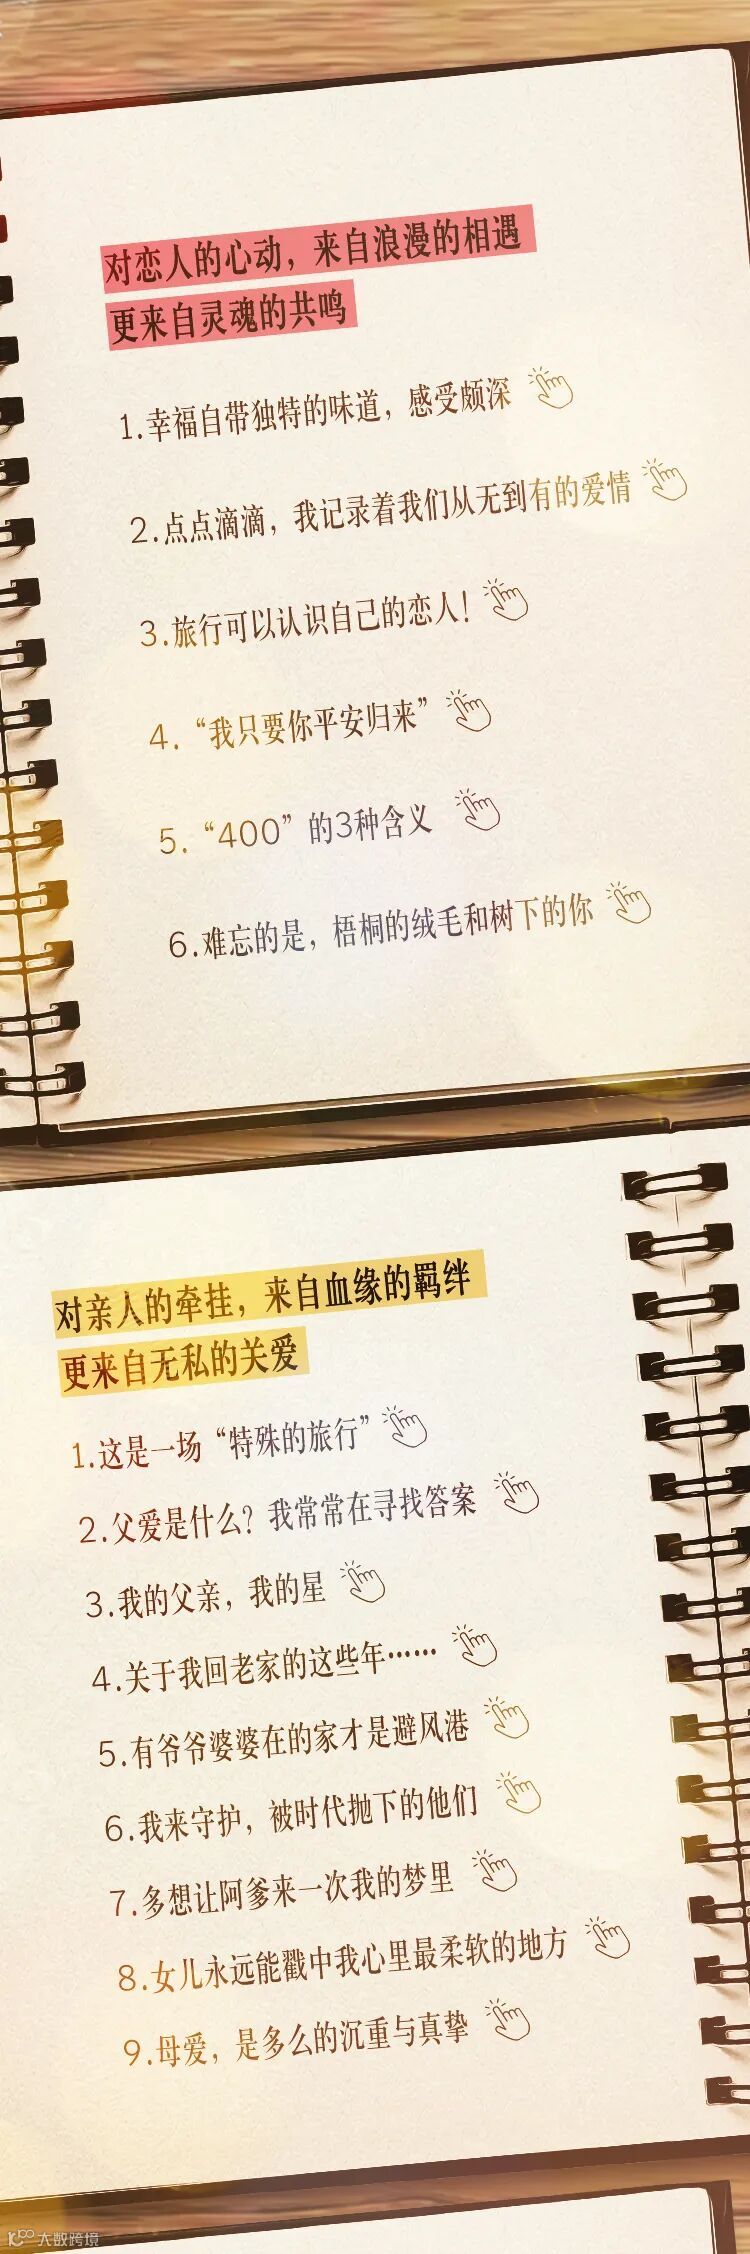 对恋人的心动，来自浪漫的相遇
更来自灵魂的共鸣
1.幸福自带独特的味道，感受颇深
2.点点滴滴，我记录着我们从无到有的爱情
3.旅行可以认识自己的恋人！
4.“我只要你平安归来”
5.“400”的3种含义
6.难忘的是，梧桐的绒毛和树下的你
对亲人的牵挂，来自血缘的羁绊
更来自无私的关爱
1.这是一场“特殊的旅行”
2.父爱是什么？我常常在寻找答案
3.我的父亲，我的星
4.关于我回老家的这些年……
5.有爷爷婆婆在的家才是避风港
6.我来守护，被时代抛下的他们
7.多想让阿爹来一次我的梦里
8.女儿永远能戳中我心里最柔软的地方
9.母爱，是多么的沉重与真挚
大数跨境